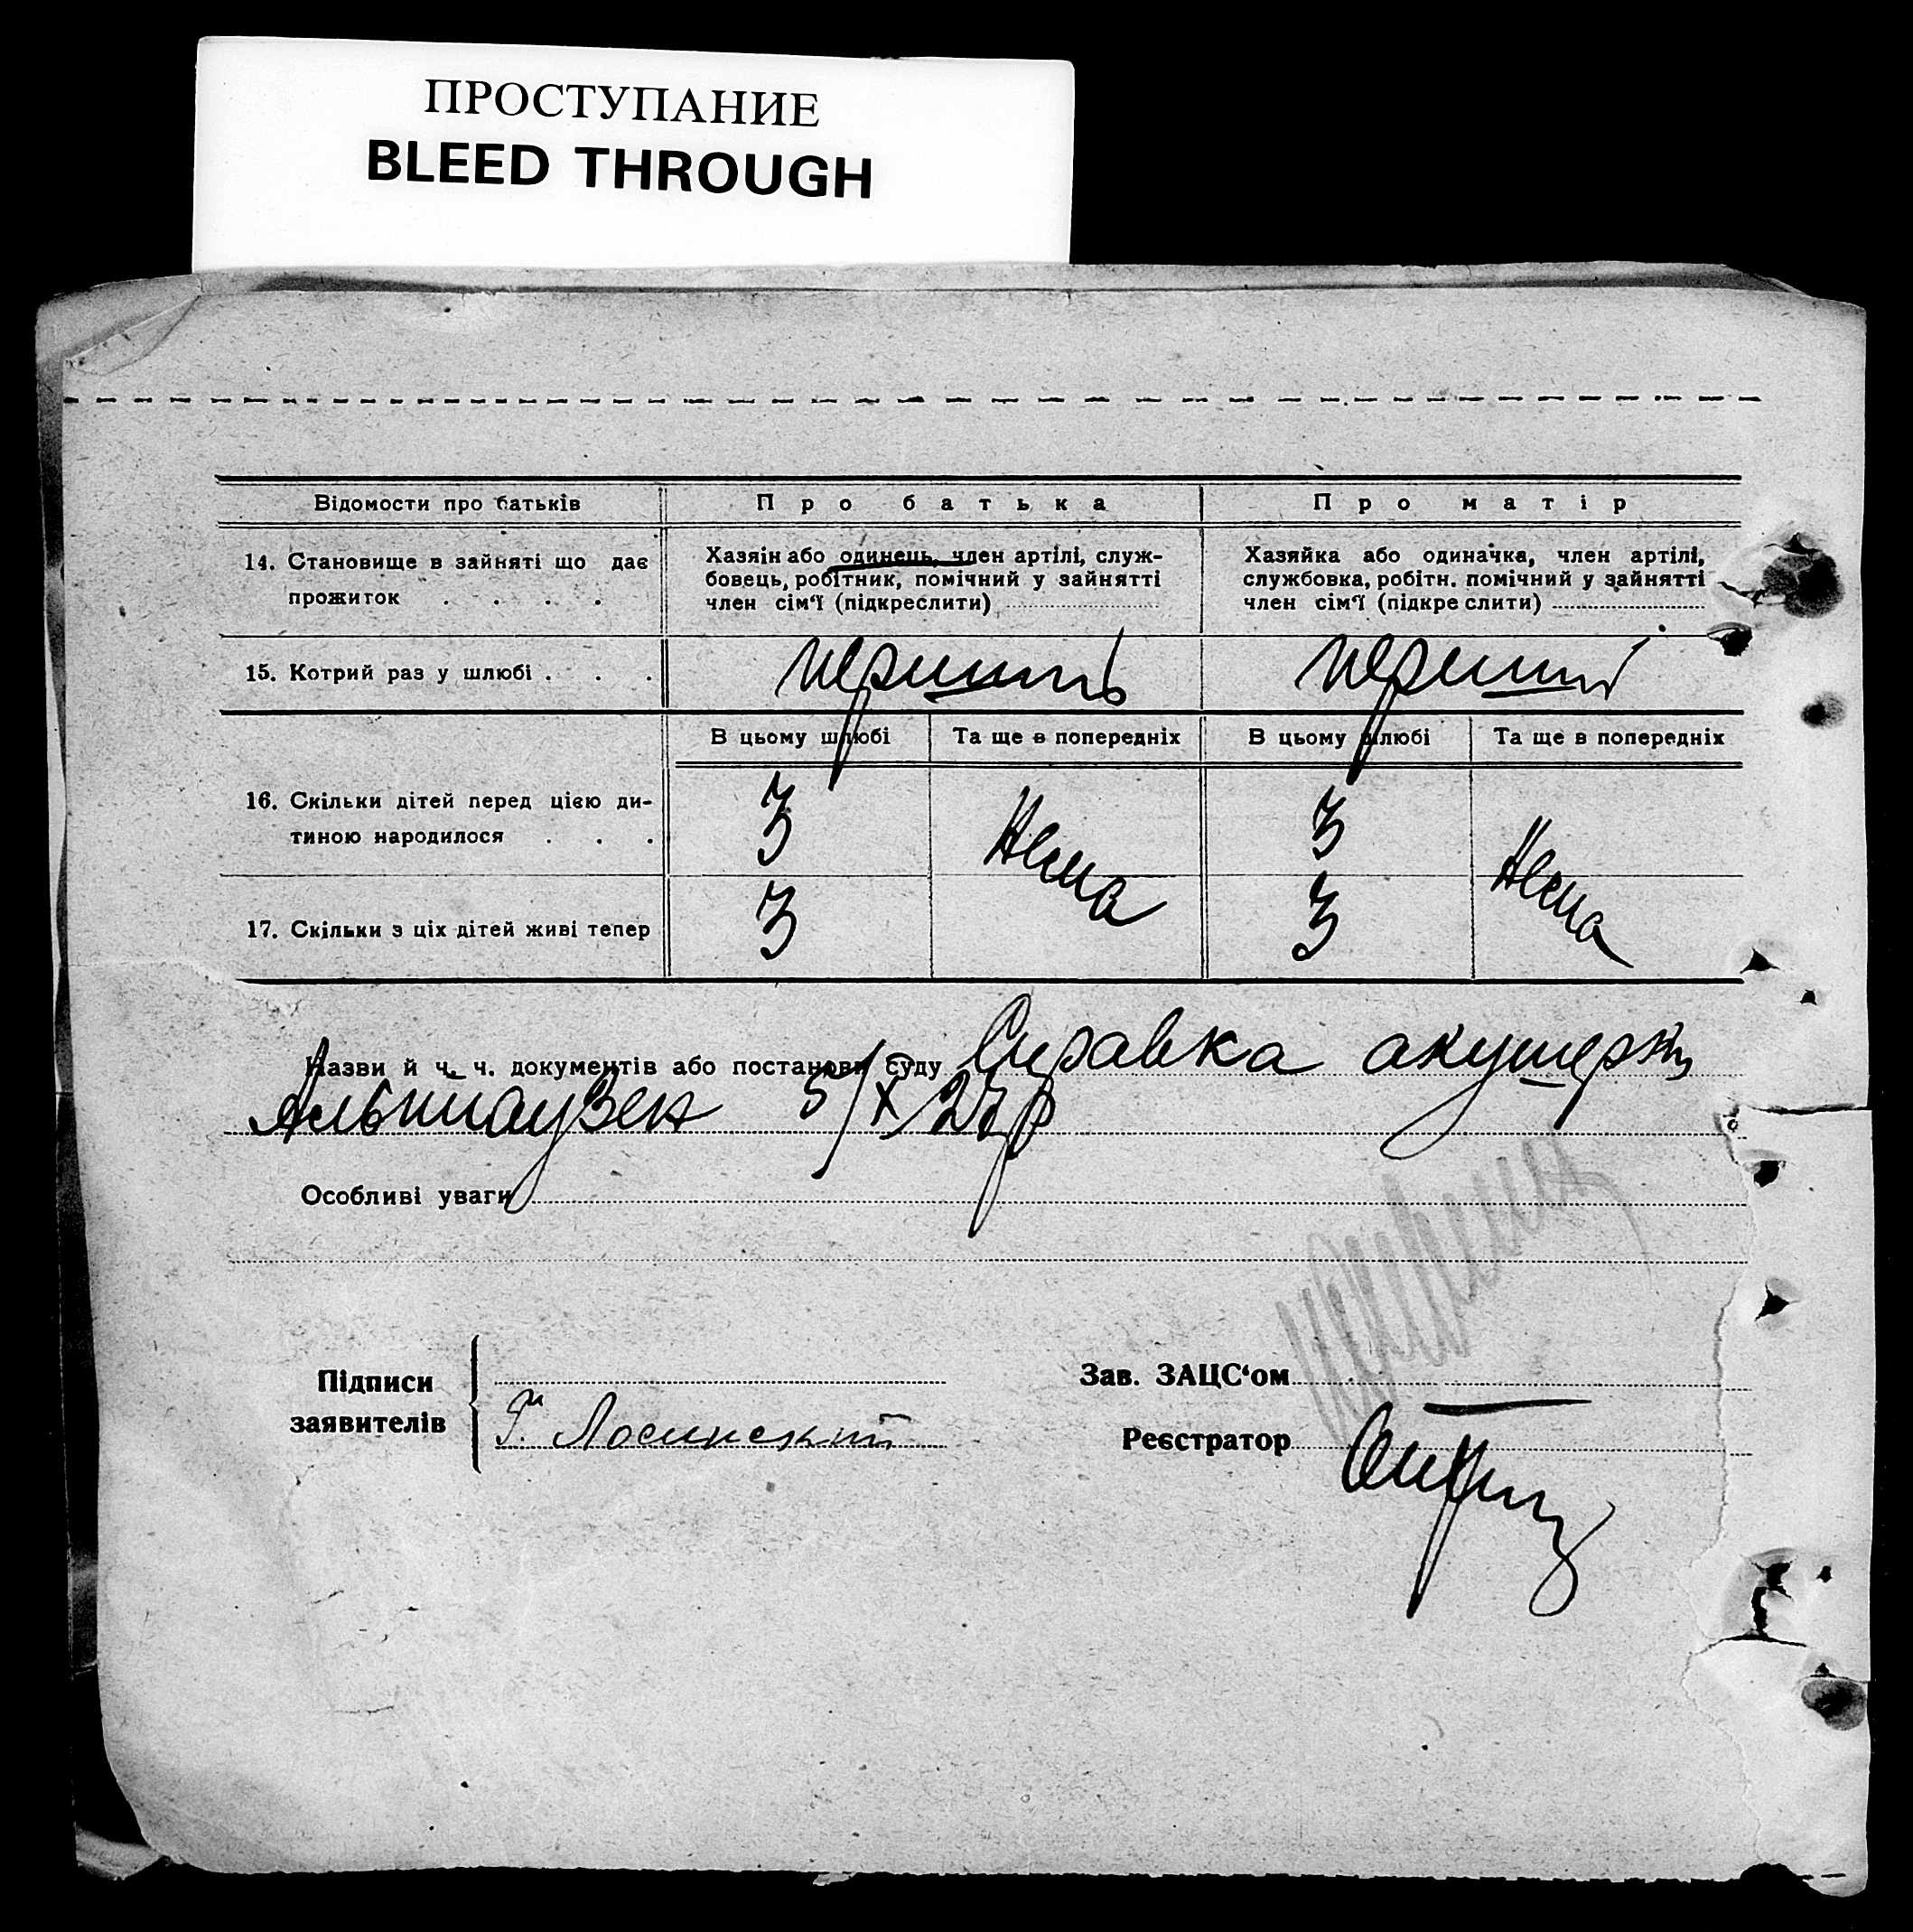 ПРОСТУПАНИЕ
BLEED THROUGH
Відомости про батьків
Про батька
Про матір
14. Становище в зайняті що дає
прожиток . . . .
Хазяін або одинець, член артілі, служ-
бовець, робітник, помічний у зайнятті
член сім‘ї (підкреслити)
Хазяйка або одиначка, член артілі,
службовка, робітн. помічний у зайнятті
член сім‘ї (підкреслити)
15. Котрий раз у шлюбі . . .
перший
перший
В цьому шлюбі
Та ще в попередніх
В цьому шлюбі
Та ще в попередніх
16. Скільки дітей перед цією ди-
тиною народилося . . .
3
Нема
3
Нема
17. Скільки з ціх дітей живі тепер
3
3
Назви й ч. ч. документів або постанови суду Справка акушерки
5/X 27р
Особливі уваги
Підписи
заявителів
Г. Лосинский
Зав. ЗАЦС‘ом
Реєстратор